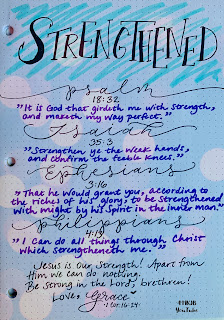 STRENGTHENED
psalm
18:32
"It is God that girdeth me with Strength,
and maketh my way perfect."
Isaiah
35:3
"Strengthen ye the weak hands,
and confirm the feeble knees."
Ephesians
3:16
"That he would grant you, according to
the riches of his glory, to be strengthened
with might by his Spirit in the inner man."
philippians
4:13
"I can do all things through Christ
which strengtheneth me."
Jesus is our Strength! Apart from
Him we can do nothing.
Be strong in the Lord, brethren!
Love, Grace
1 Cor. 16:24
YouTube